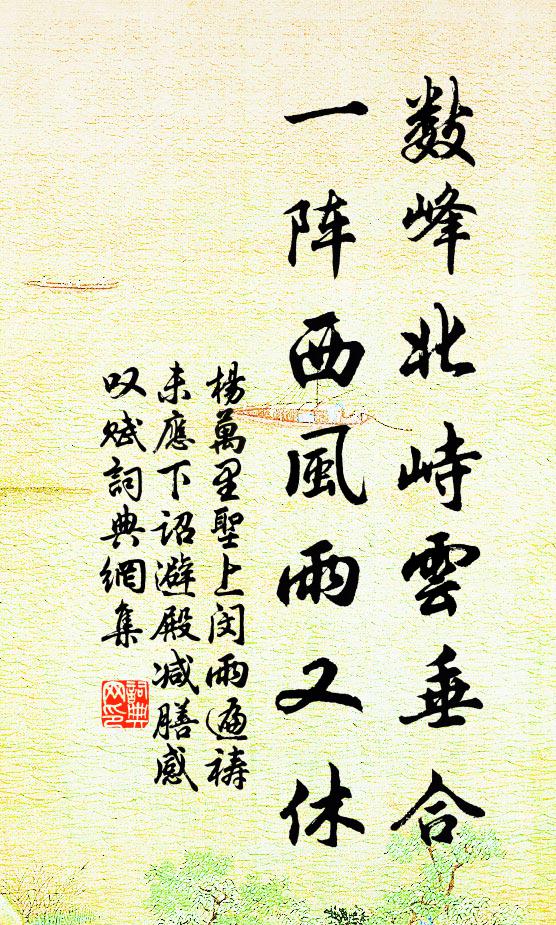 数峰北峙雲垂合
一阵西風雨又休
楊萬里聖上闵雨遍禱
未應下詔避殿减膳感
叹赋詞典網集
詞典网印